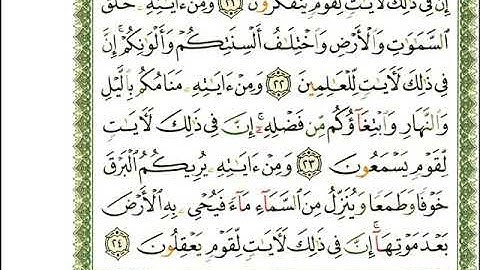 إِنَّ فِى ذَٰلِكَ لَأٓيَٰتٍ لِّقَوْمٍ يَتَفَكَّرُونَ ٢١ وَمِنْ ءَايَٰتِهِۦ خَلْقُ
ٱلسَّمَٰوَٰتِ وَٱلْأَرْضِ وَٱخْتِلَٰفُ أَلْسِنَتِكُمْ وَأَلْوَٰنِكُمْ ۚ إِنَّ
فِى ذَٰلِكَ لَأٓيَٰتٍ لِّلْعَٰلِمِينَ ٢٢ وَمِنْ ءَايَٰتِهِۦ مَنَامُكُم بِٱلَّيْلِ
وَٱلنَّهَارِ وَٱبْتِغَآؤُكُم مِّن فَضْلِهِۦٓ ۚ إِنَّ فِى ذَٰلِكَ لَأٓيَٰتٍ
لِّقَوْمٍ يَسْمَعُونَ ٢٣ وَمِنْ ءَايَٰتِهِۦ يُرِيكُمُ ٱلْبَرْقَ
خَوْفًا وَطَمَعًا وَيُنَزِّلُ مِنَ ٱلسَّمَآءِ مَآءً فَيُحْىِۦ بِهِ ٱلْأَرْضَ
بَعْدَ مَوْتِهَآ ۚ إِنَّ فِى ذَٰلِكَ لَأٓيَٰتٍ لِّقَوْمٍ يَعْقِلُونَ ٢٤